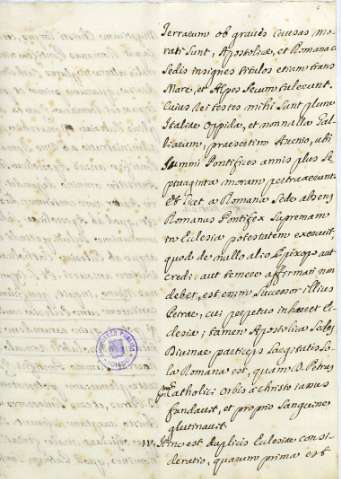 terrarum ob graves causas, mo
rati sunt, Apostolicæ, et Romanæ
Sedis insignes titulos etiam trans
Mare, et Alpes secum tulerunt.
Cuius rei testes mihi sunt plura
Italiæ Oppida, et nonnulla Gal
liarum, præsertim Avenio, ubi
summi Pontifices annis plus se
ptuaginta moram pertraxerunt.
Et licet a Romana Sede absens
Romanus Pontifex supremam
in Ecclesia potestatem exerceat,
quod de nullo alio Episcopo aut
credi, aut temere affirmari non
debet, est enim successor illius
Petræ, cui perpetuo inhæret Ec
clesia; tamen Apostolicæ
particeps sola
Romana est, quam D. Petrus
Catholici Orbis a Christo
fundavit, et proprio Sanguine
glutinavit.
est duplicis Ecclesiæ consi
deratio, quarum prima est